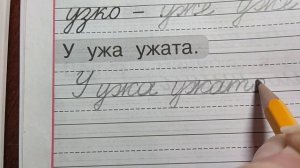 узко – уже уже
У ужа ужата.
У ужа ужат